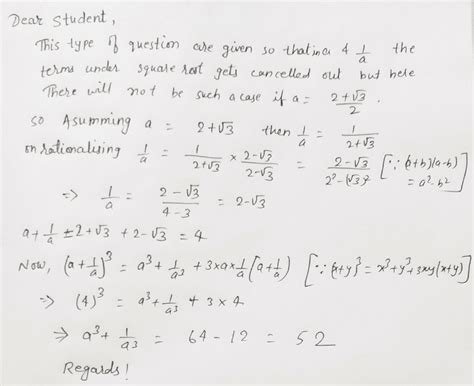 Dear Student,
This type of question are given so that in a & 1/a the
terms under square root gets cancelled out but here
There will not be such a case if a = (2+√3)/2.
So Asumming a = 2+√3 then 1/a = 1/(2+√3)
on rationalising 1/a = 1/(2+√3) × (2-√3)/(2-√3) = (2-√3)/(2²-(√3)²) [∵ (a+b)(a-b) = a²-b²]
⇒ 1/a = (2-√3)/(4-3) = 2-√3
a + 1/a = 2+√3 + 2-√3 = 4
Now, (a+1/a)³ = a³ + 1/a³ + 3×a×1/a(a+1/a) [∵ (x+y)³ = x³+y³+3xy(x+y)]
⇒ (4)³ = a³ + 1/a³ + 3×4
⇒ a³ + 1/a³ = 64-12 = 52
Regards!